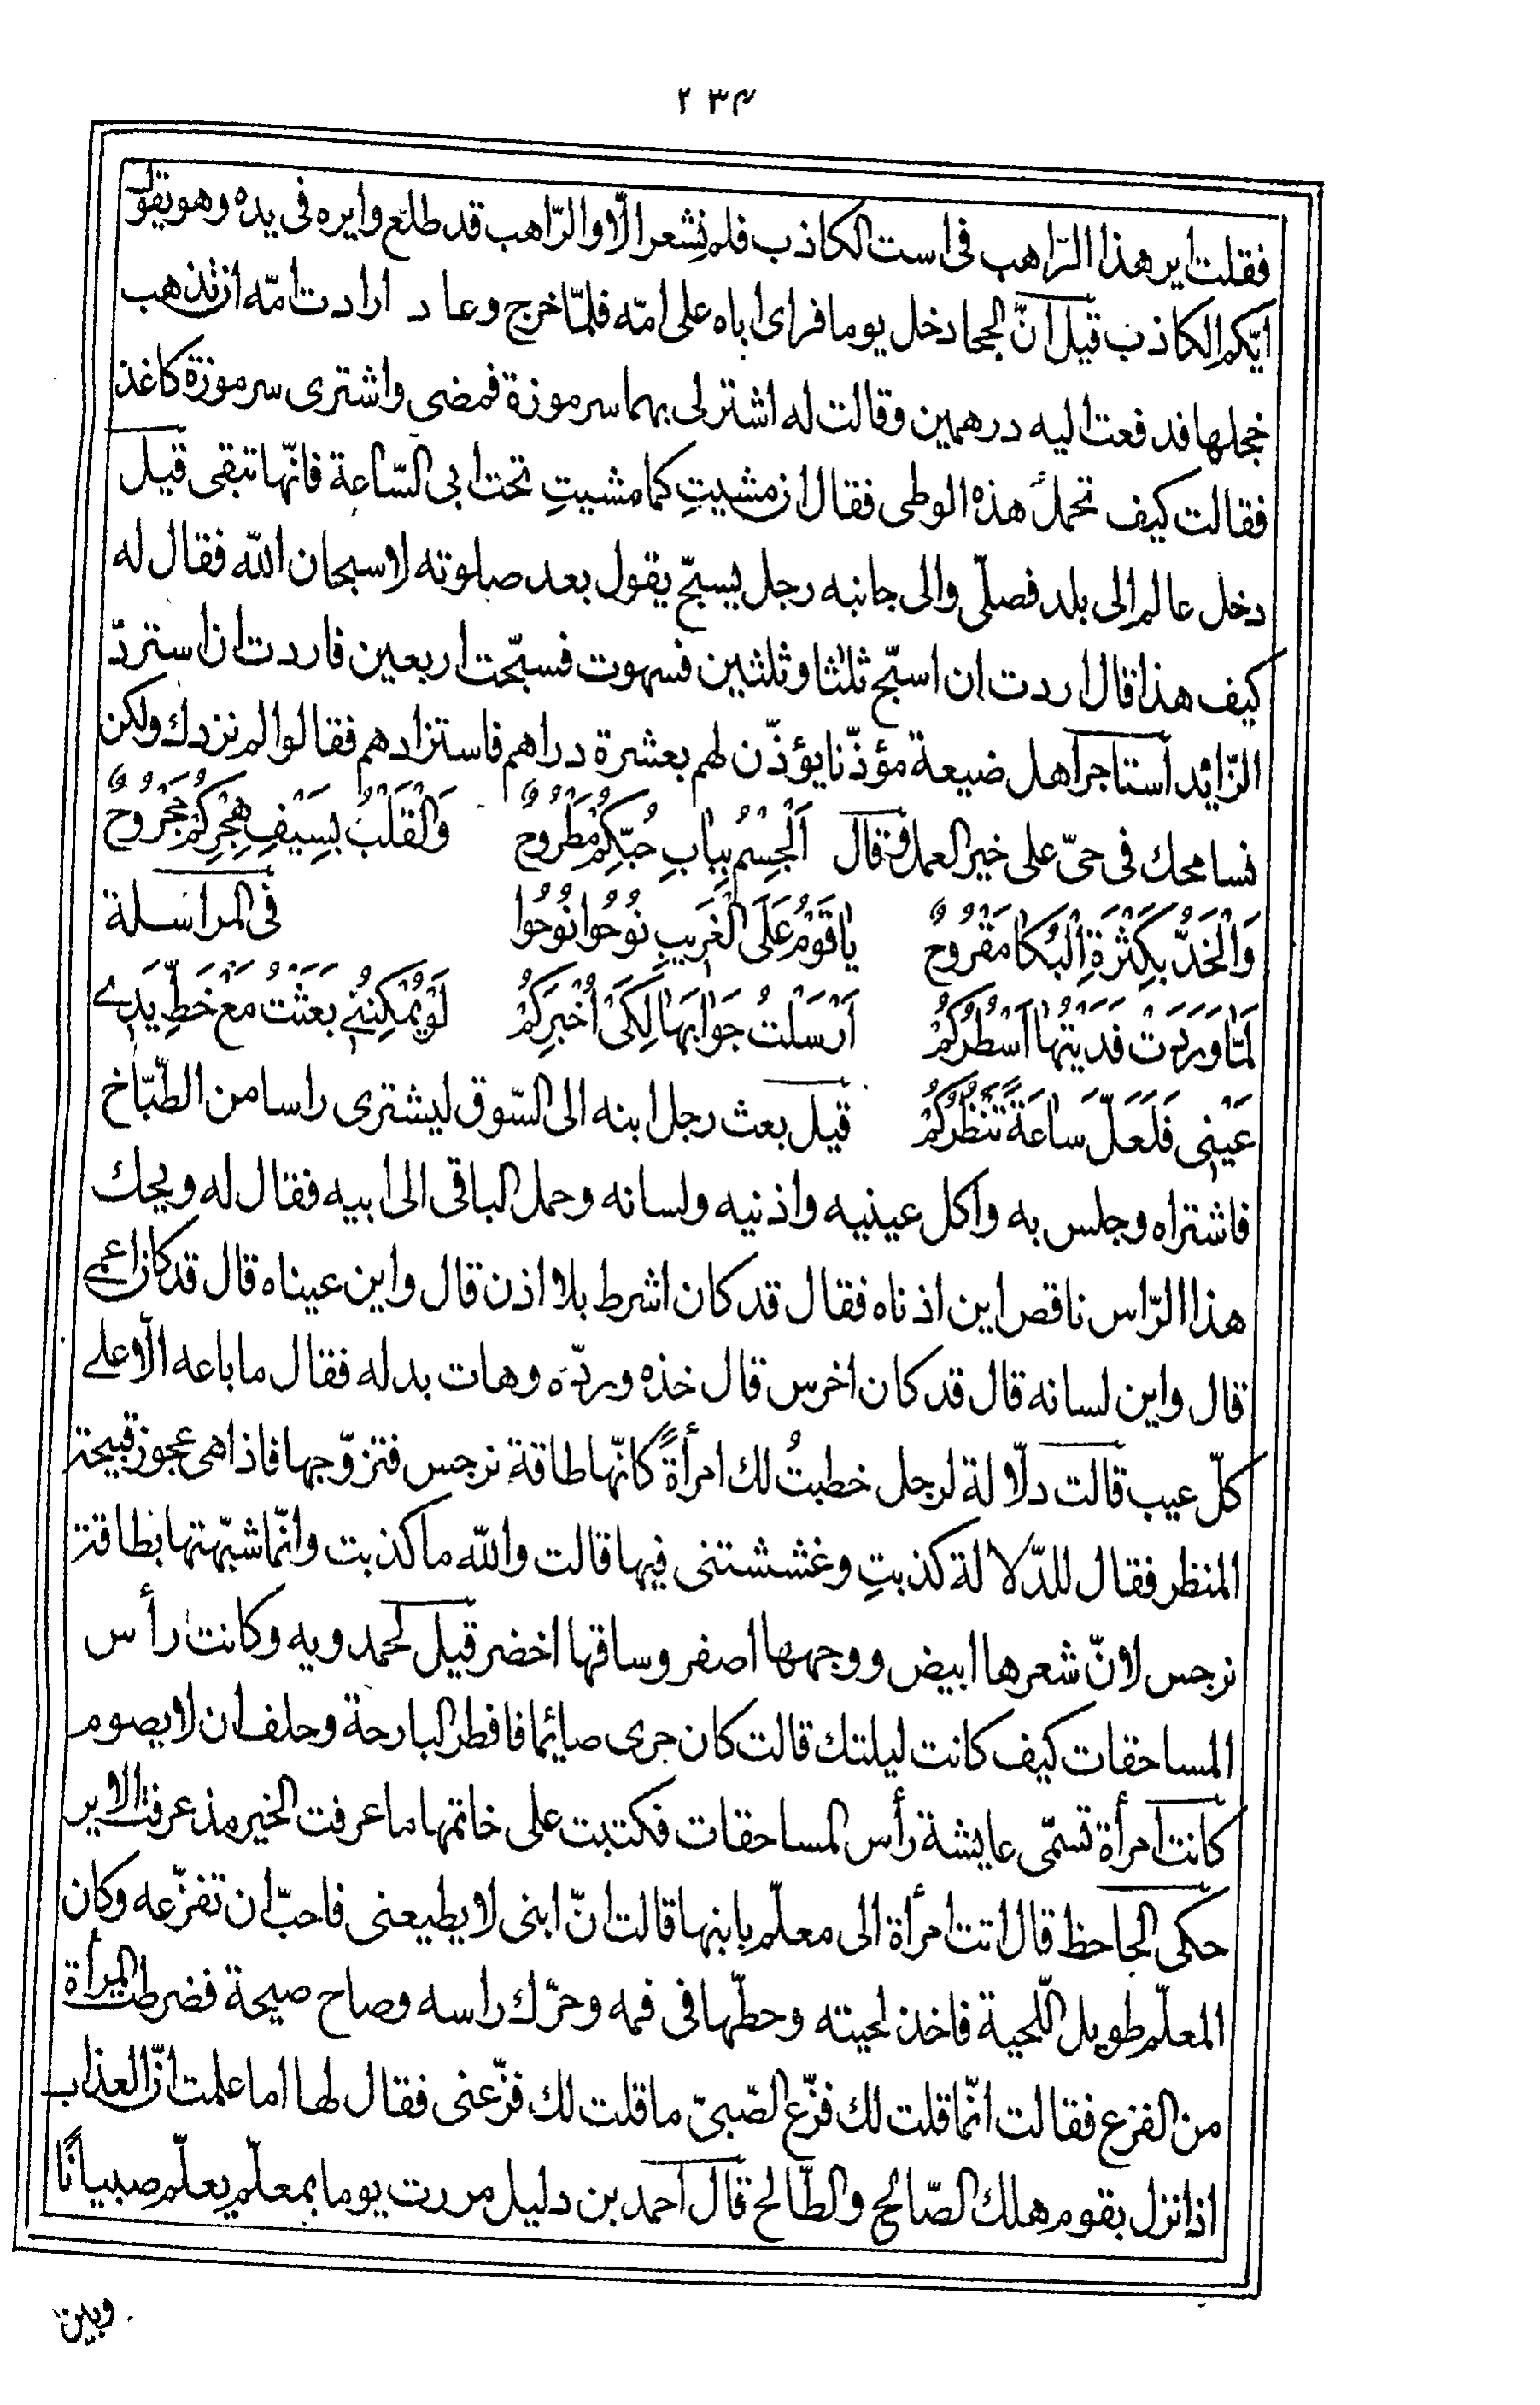 ٢٣٤
فقلت اير هذا الرّاهب فى است الكاذب فلم نشعر الّا والرّاهب قد طلع وايره فى يده وهو يقول
ايّكم الكاذب قيل انّ الجحا دخل يوما فراى اباه على امّه فلمّا خرج وعاد ارادت امّه ان تذهب
خجلها فدفعت اليه درهمين وقالت له اشتر لى بهما سرموزة فمضى واشترى سرموزة كاغذ
فقالت كيف تحمل هذه الوطى فقال ان مشيتِ كما مشيتِ تحت ابى السّاعة فانّها تبقى قيل
دخل عالم الى بلد فصلّى والى جانبه رجل يسبّح يقول بعد صلوته لا سبحان اللّه فقال له
كيف هذا قال اردت ان اسبّح ثلثا وثلثين فسهوت فسبّحت اربعين فاردت ان استردّ
الزّائد استاجر اهل ضيعة مؤذّنا يؤذّن لهم بعشرة دراهم فاستزادهم فقالوا لم نزدك ولكن
نسامحك فى حىّ على خير العمل وقال اَلْجِسْمُ بِبابِ حُبِّكِمْ مَطْرُوحٌ وَالْقَلْبُ بِسَيْفِ هِجْرِكُمْ مَجْرُوحٌ
وَالْخَدُّ بِكَثْرَةِ الْبُكا مَقْرُوحٌ يا قَوْمُ عَلَى الْغَرِيبِ نُوحُوا نُوحُوا فى المراسلة
لَمّا وَرَدَتْ فَدَيْتُها اَسْطُرُكُمْ اَرْسَلْتُ جَوابَها لِكَىْ اُخْبِرَكُمْ لَوْ يُمْكِنُنِى بَعَثْتُ مَعْ خَطِّ يَدِى
عَيْنِى فَلَعَلَّ ساعَةً تَنْظُرُكُمْ قيل بعث رجل ابنه الى السّوق ليشترى راسا من الطّبّاخ
فاشتراه وجلس به واكل عينيه واذنيه ولسانه وحمل الباقى الى ابيه فقال له ويحك
هذا الرّاس ناقص اين اذناه فقال قد كان اشرط بلا اذن قال واين عيناه قال قد كان اعمى
قال واين لسانه قال قد كان اخرس قال خذه وردّه وهات بدله فقال ما باعه الّا على
كلّ عيب قالت دلّالة لرجل خطبتُ لك امرأةً كانّها طاقة نرجس فتزوّجها فاذا هى عجوز قبيحة
المنظر فقال للدّلالة كذبتِ وغششتنى فيها قالت واللّه ما كذبت وانّما شبّهتها بطاقة
نرجس لانّ شعرها ابيض ووجهها اصفر وساقها اخضر قيل لحمدويه وكانت رأس
المساحقات كيف كانت ليلتك قالت كان حرى صائما فافطر البارحة وحلف ان لا يصوم
كانت امرأة تسمّى عايشة رأس المساحقات فكتبت على خاتمها ما عرفت الخير مذ عرفت الاير
حكى الجاحظ قال اتت امرأة الى معلّم بابنها قالت انّ ابنى لا يطيعنى فاحبّ ان تفزّعه وكان
المعلّم طويل اللّحية فاخذ لحيته وحطّها فى فمه وحرّك راسه وصاح صيحة فضرطت المرأة
من الفزع فقالت انّما قلت لك فزّع الصّبىّ ما قلت لك فزّعنى فقال لها اما علمت انّ العذاب
اذا نزل بقوم هلك الصّالح والطّالح قال احمد بن دليل مررت يوما بمعلّم يعلّم صبيانًا
وبين